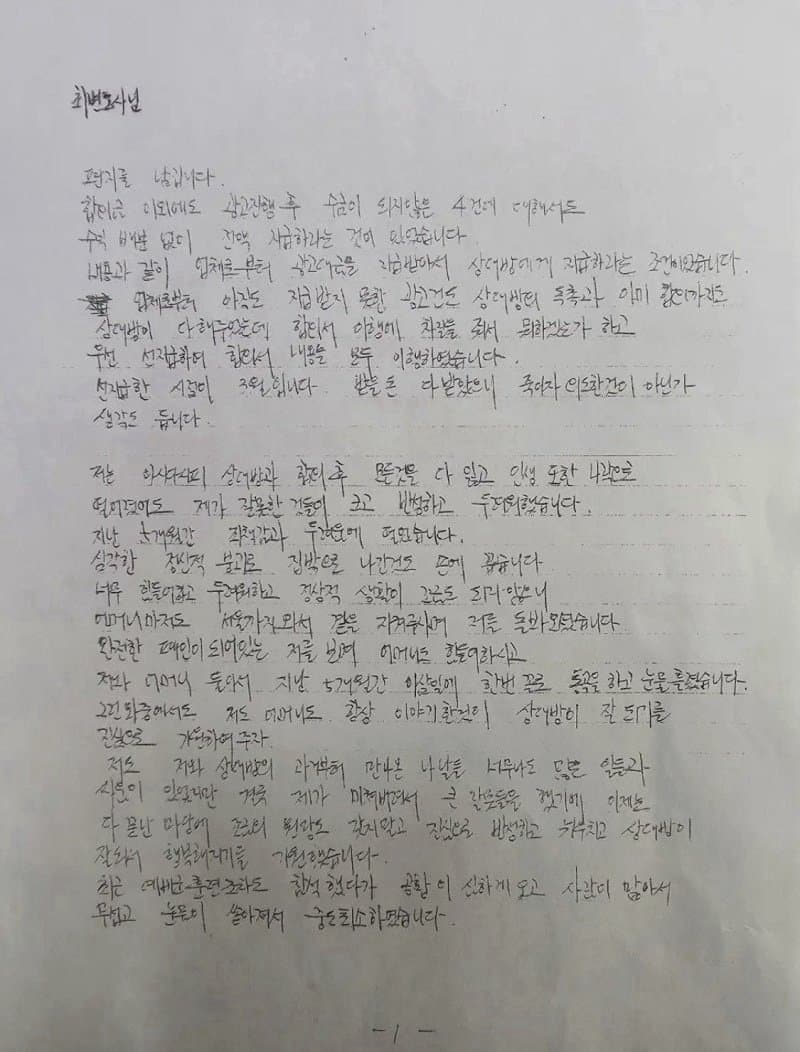 최변호사님
편지를 남깁니다.
합의금 이외에도 광고진행 후 수금이 되지않은 4건에 대해서도
수익 배분 없이 전액 지급하라는 것이 있었습니다.
내용과 같이 업체로부터 광고대금을 지급받아서 상대방에게 지급하라는 조건이었습니다.
업체로부터 아직도 지급받지 못한 광고건도 상대방의 독촉과 이미 합의까지도
상대방이 다해주었는데 합의서 이행에 차질을 줘서 뭐하겠는가 하고
우선 선지급하여 합의서 내용을 모두 이행하였습니다.
선지급한 시점이 3월입니다. 받을 돈 다 받았으니 죽이자 의도한것이 아닌가
생각도 듭니다.
저는 아시다시피 상대방과 합의 후 모든것을 다 잃고 인생 또한 나락으로
떨어졌어도 제가 잘못한 것들이 크고 반성하고 두려워했습니다.
지난 5개월간 죄책감과 두려움에 떨었습니다.
심각한 정신적 붕괴로 집밖으로 나간것도 손에 꼽습니다
너무 힘들어하고 두려워하고 정상적 생활이 조금도 되지 않으니
어머니마저도 서울까지 와서 곁을 지켜주시며 저를 돌봐오셨습니다
완전한 폐인이 되어있는 저를 보며 어머니도 힘들어하시고
저와 어머니 둘아서 지난 5개월간 이삼일에 한번 꼴로 통곡을 하고 눈물을 흘렸습니다.
그런 와중에서도 저도 어머니도 항상 이야기한것이 상대방이 잘 되기를
진심으로 기원하여주자.
저도 저와 상대방의 과거부터 만나온 나날들 너무나도 많은 일들과
사연이 있었지만 결국 제가 미쳐버려서 큰 잘못들을 했기에 이제는
다 끝난 마당에 조금의 원망도 갖지말고 진심으로 반성하고 뉘우치고 상대방이
잘되서 행복해지기를 기원했습니다.
최근 예비군 훈련조차도 참석했다가 공황이 심하게 오고 사람이 많아서
무섭고 눈물이 쏟아져서 중도퇴소하였습니다.
-1-